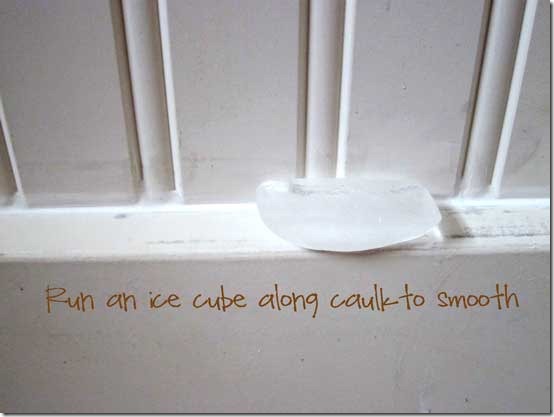 Run an ice cube along caulk to smooth